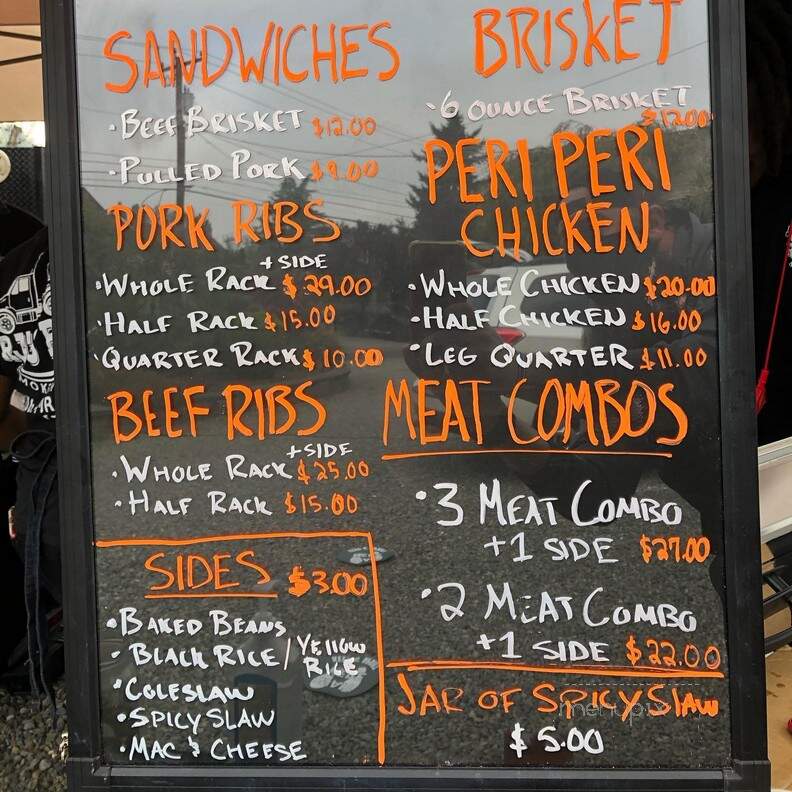 SANDWICHES
• BEEF BRISKET $12.00
• PULLED PORK $9.00
PORK RIBS
+ SIDE
• WHOLE RACK $29.00
• HALF RACK $15.00
• QUARTER RACK $10.00
BEEF RIBS
+ SIDE
• WHOLE RACK $25.00
• HALF RACK $15.00
SIDES $3.00
• BAKED BEANS
• BLACK RICE / YELLOW RICE
• COLESLAW
• SPICY SLAW
• MAC & CHEESE
BRISKET
• 6 OUNCE BRISKET
$12.00
PERI PERI
CHICKEN
• WHOLE CHICKEN $20.00
• HALF CHICKEN $16.00
• LEG QUARTER $11.00
MEAT COMBOS
• 3 MEAT COMBO
+ 1 SIDE $27.00
• 2 MEAT COMBO
+ 1 SIDE $22.00
JAR OF SPICY SLAW
$5.00
menupix